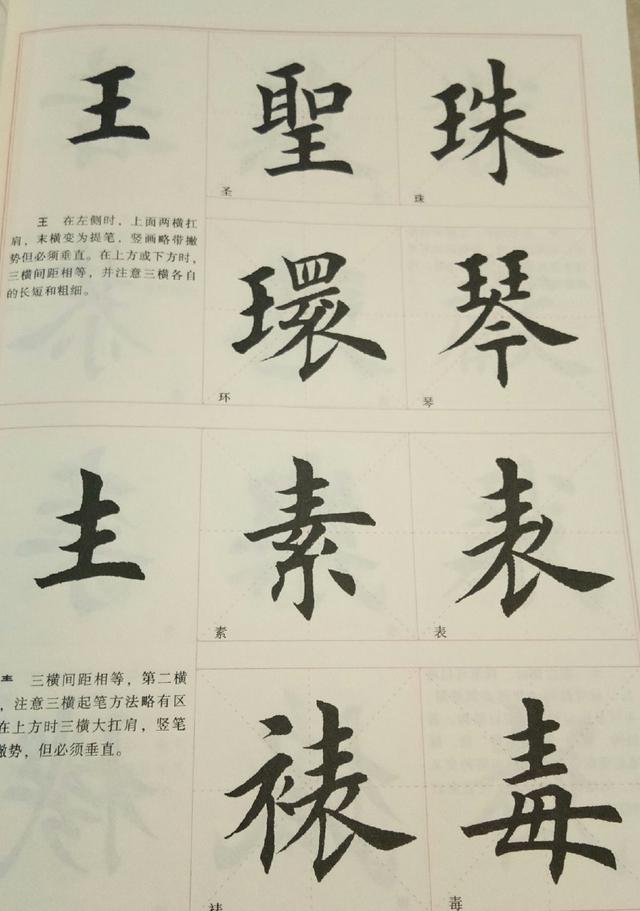 王 聖 珠
圣 珠
王 在左侧时，上面两横扛
肩，末横变为提笔，竖画略带撇
势但必须垂直。在上方或下方时，
三横间距相等，并注意三横各自
的长短和粗细。
環 琴
环 琴
龶 素 表
素 表
龶 三横间距相等，第二横
，注意三横起笔方法略有区
在上方时三横大扛肩，竖笔
撇势，但必须垂直。
裱 毒
裱 毒